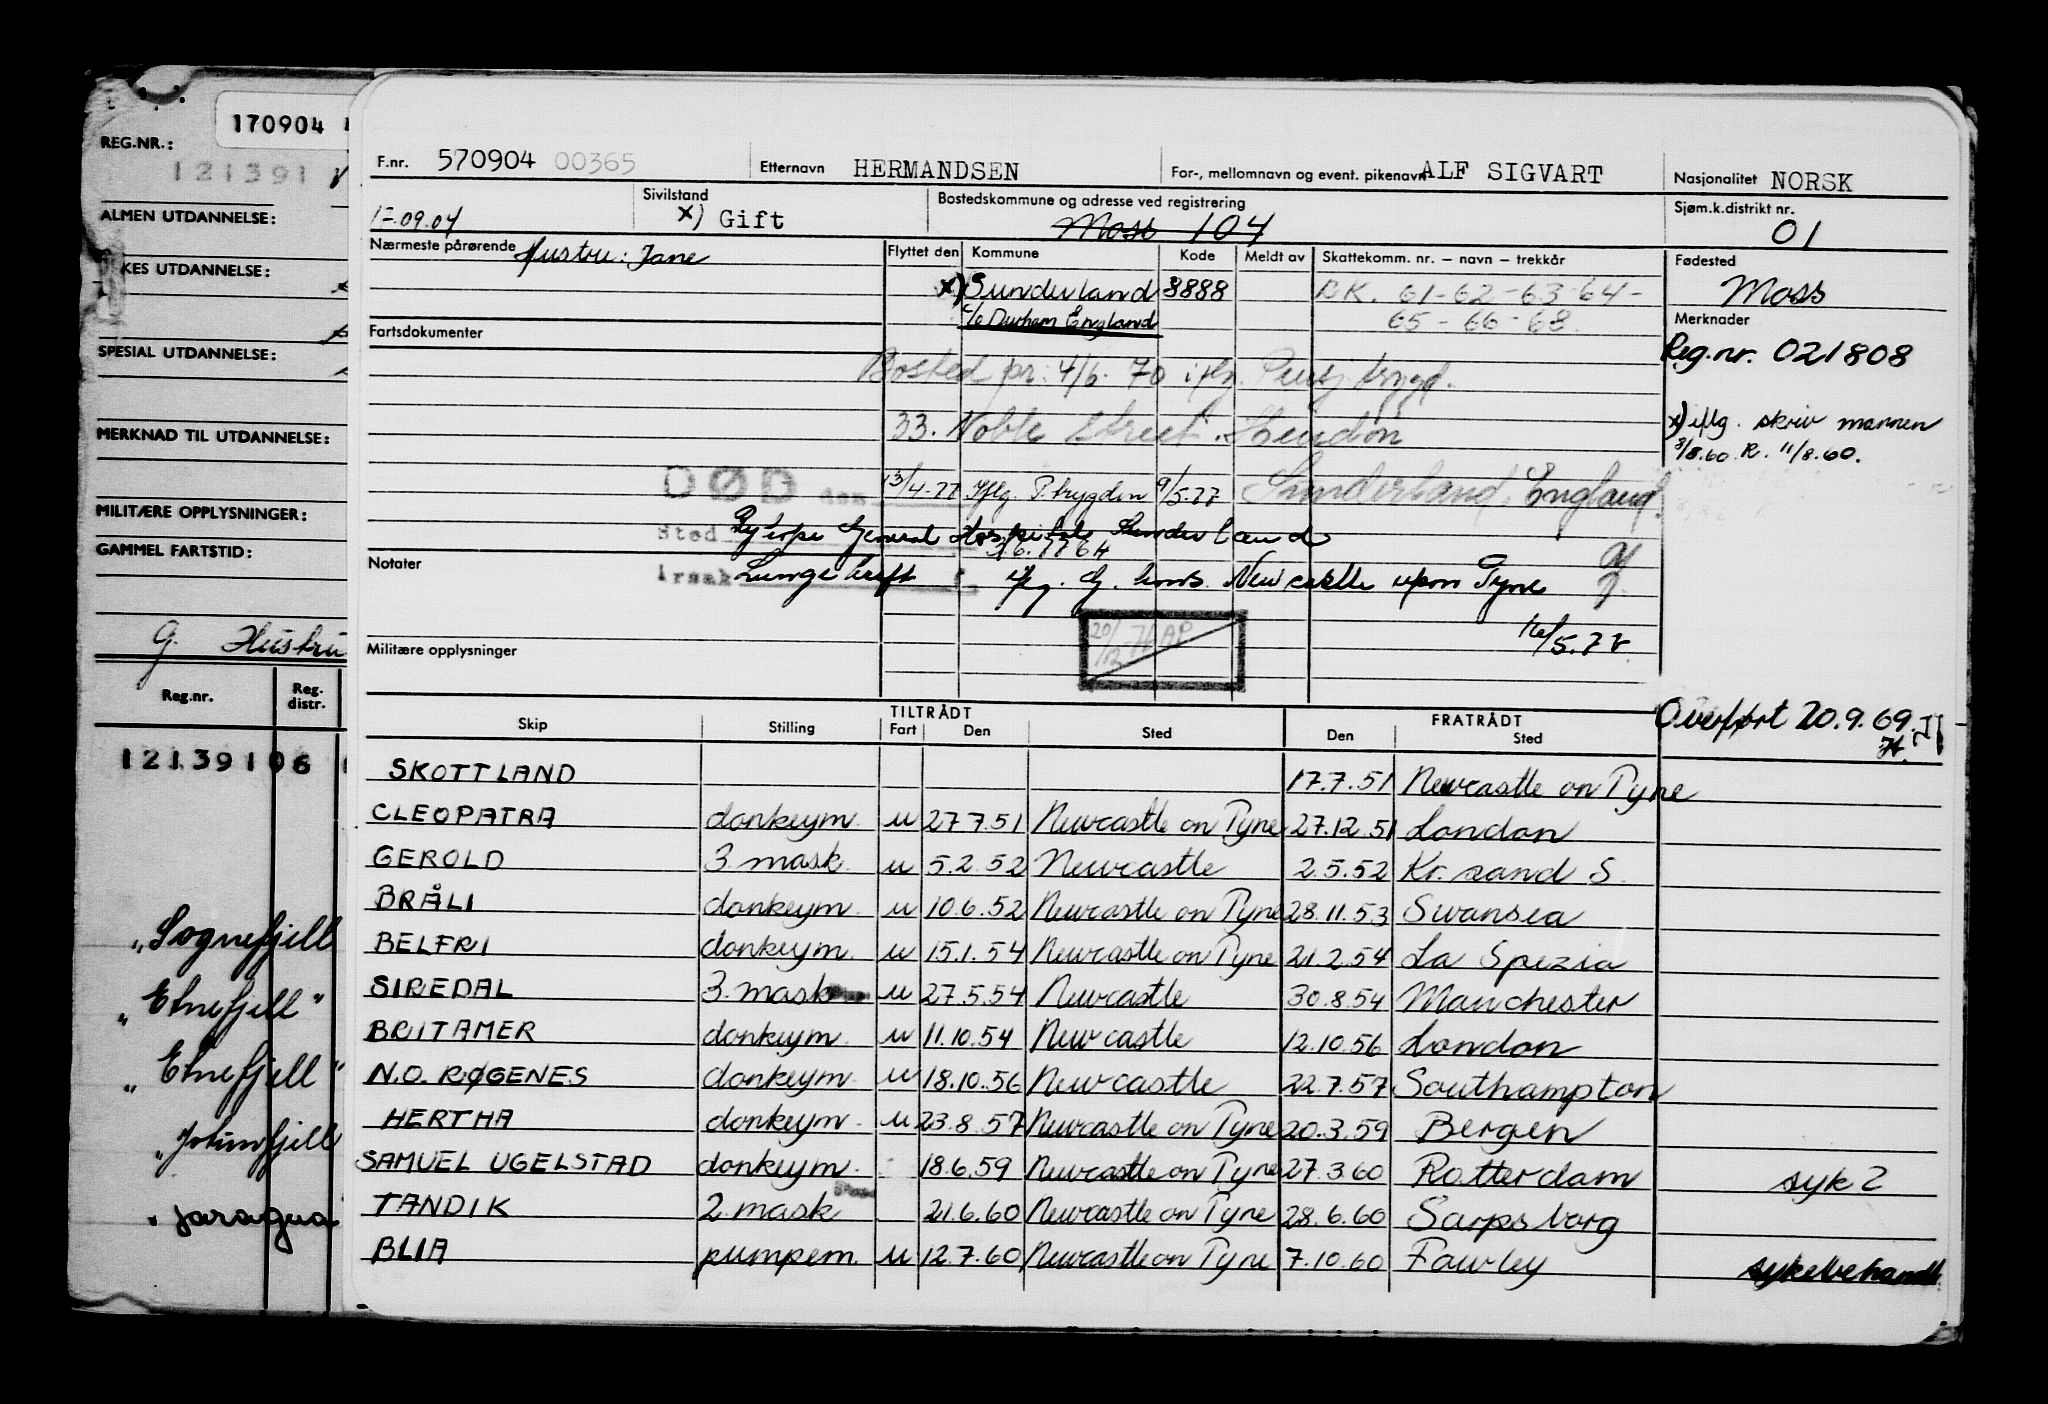 170904
REG.NR.:
121391
ALMEN UTDANNELSE:
KES UTDANNELSE:
SPESIAL UTDANNELSE:
MERKNAD TIL UTDANNELSE:
MILITÆRE OPPLYSNINGER:
GAMMEL FARTSTID:
G. Hustru
Reg.nr. Reg. distr.
12139106
"Sognefjell
"Etnefjell"
"Etnefjell"
"Jotunfjell
"Jaragua
F.nr. 570904 00365 Etternavn HERMANDSEN For-, mellomnavn og event. pikenavn ALF SIGVART Nasjonalitet NORSK
17.09.04 Sivilstand x) Gift Bostedskommune og adresse ved registrering Moss 104 Sjøm.k.distrikt nr. 01
Nærmeste pårørende Hustru: Jane Flyttet den Kommune Kode Meldt av Skattekomm. nr. – navn – trekkår Fødested
x) Sunderland 8888 R.K. 61-62-63-64- Moss
c/o Durham England 65-66-68 Merknader
Fartsdokumenter Reg.nr. 021808
Bosted pr. 4/6-70 iflg. Pensj.trygd.
33. Noble Street. Hendon x) iflg. skriv mannen
3/8.60 R. 11/8.60.
DØD den 13/4-77 Iflg. P.trygden 9/5.77 Sunderland, England.
Sted Ryhope General Hospital Sunderland
Notater
Årsak Lungekreft iflg. G. kons. Newcastle upon Tyne
20/12-76 AP
16/5.77
Militære opplysninger
Overført 20.9.69.
Skip Stilling TILTRÅDT Fart Den Sted FRATRÅDT Den Sted
SKOTTLAND 17.7.51 Newcastle on Tyne
CLEOPATRA donkeym. u 27.7.51 Newcastle on Tyne 27.12.51 London
GEROLD 3 mask. u 5.2.52 Newcastle 2.5.52 Kr.sand S.
BRÅLI donkeym. u 10.6.52 Newcastle on Tyne 28.11.53 Swansea
BELFRI donkeym. u 15.1.54 Newcastle on Tyne 21.2.54 La Spezia
SIREDAL 3. mask u 27.5.54 Newcastle 30.8.54 Manchester
BRITAMER donkeym. u 11.10.54 Newcastle 12.10.56 London
N.O. RØGENES donkeym. u 18.10.56 Newcastle 22.7.57 Southampton
HERTHA donkeym. u 23.8.57 Newcastle on Tyne 20.3.59 Bergen
SAMUEL UGELSTAD donkeym. 18.6.59 Newcastle on Tyne 27.3.60 Rotterdam syk 2
TANDIK 2. mask 21.6.60 Newcastle on Tyne 28.6.60 Sarpsborg
BLIA pumpem. u 12.7.60 Newcastle on Tyne 7.10.60 Fawley sykebehandl.